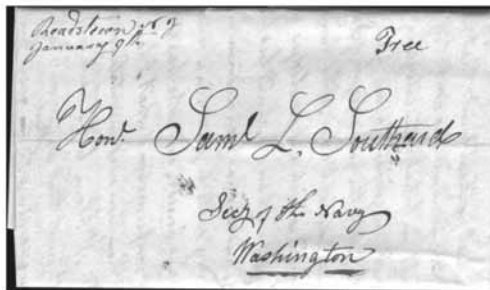 Readstown N J
January 9th
Free
Honl. Saml L. Southard
Secy of the Navy
Washington